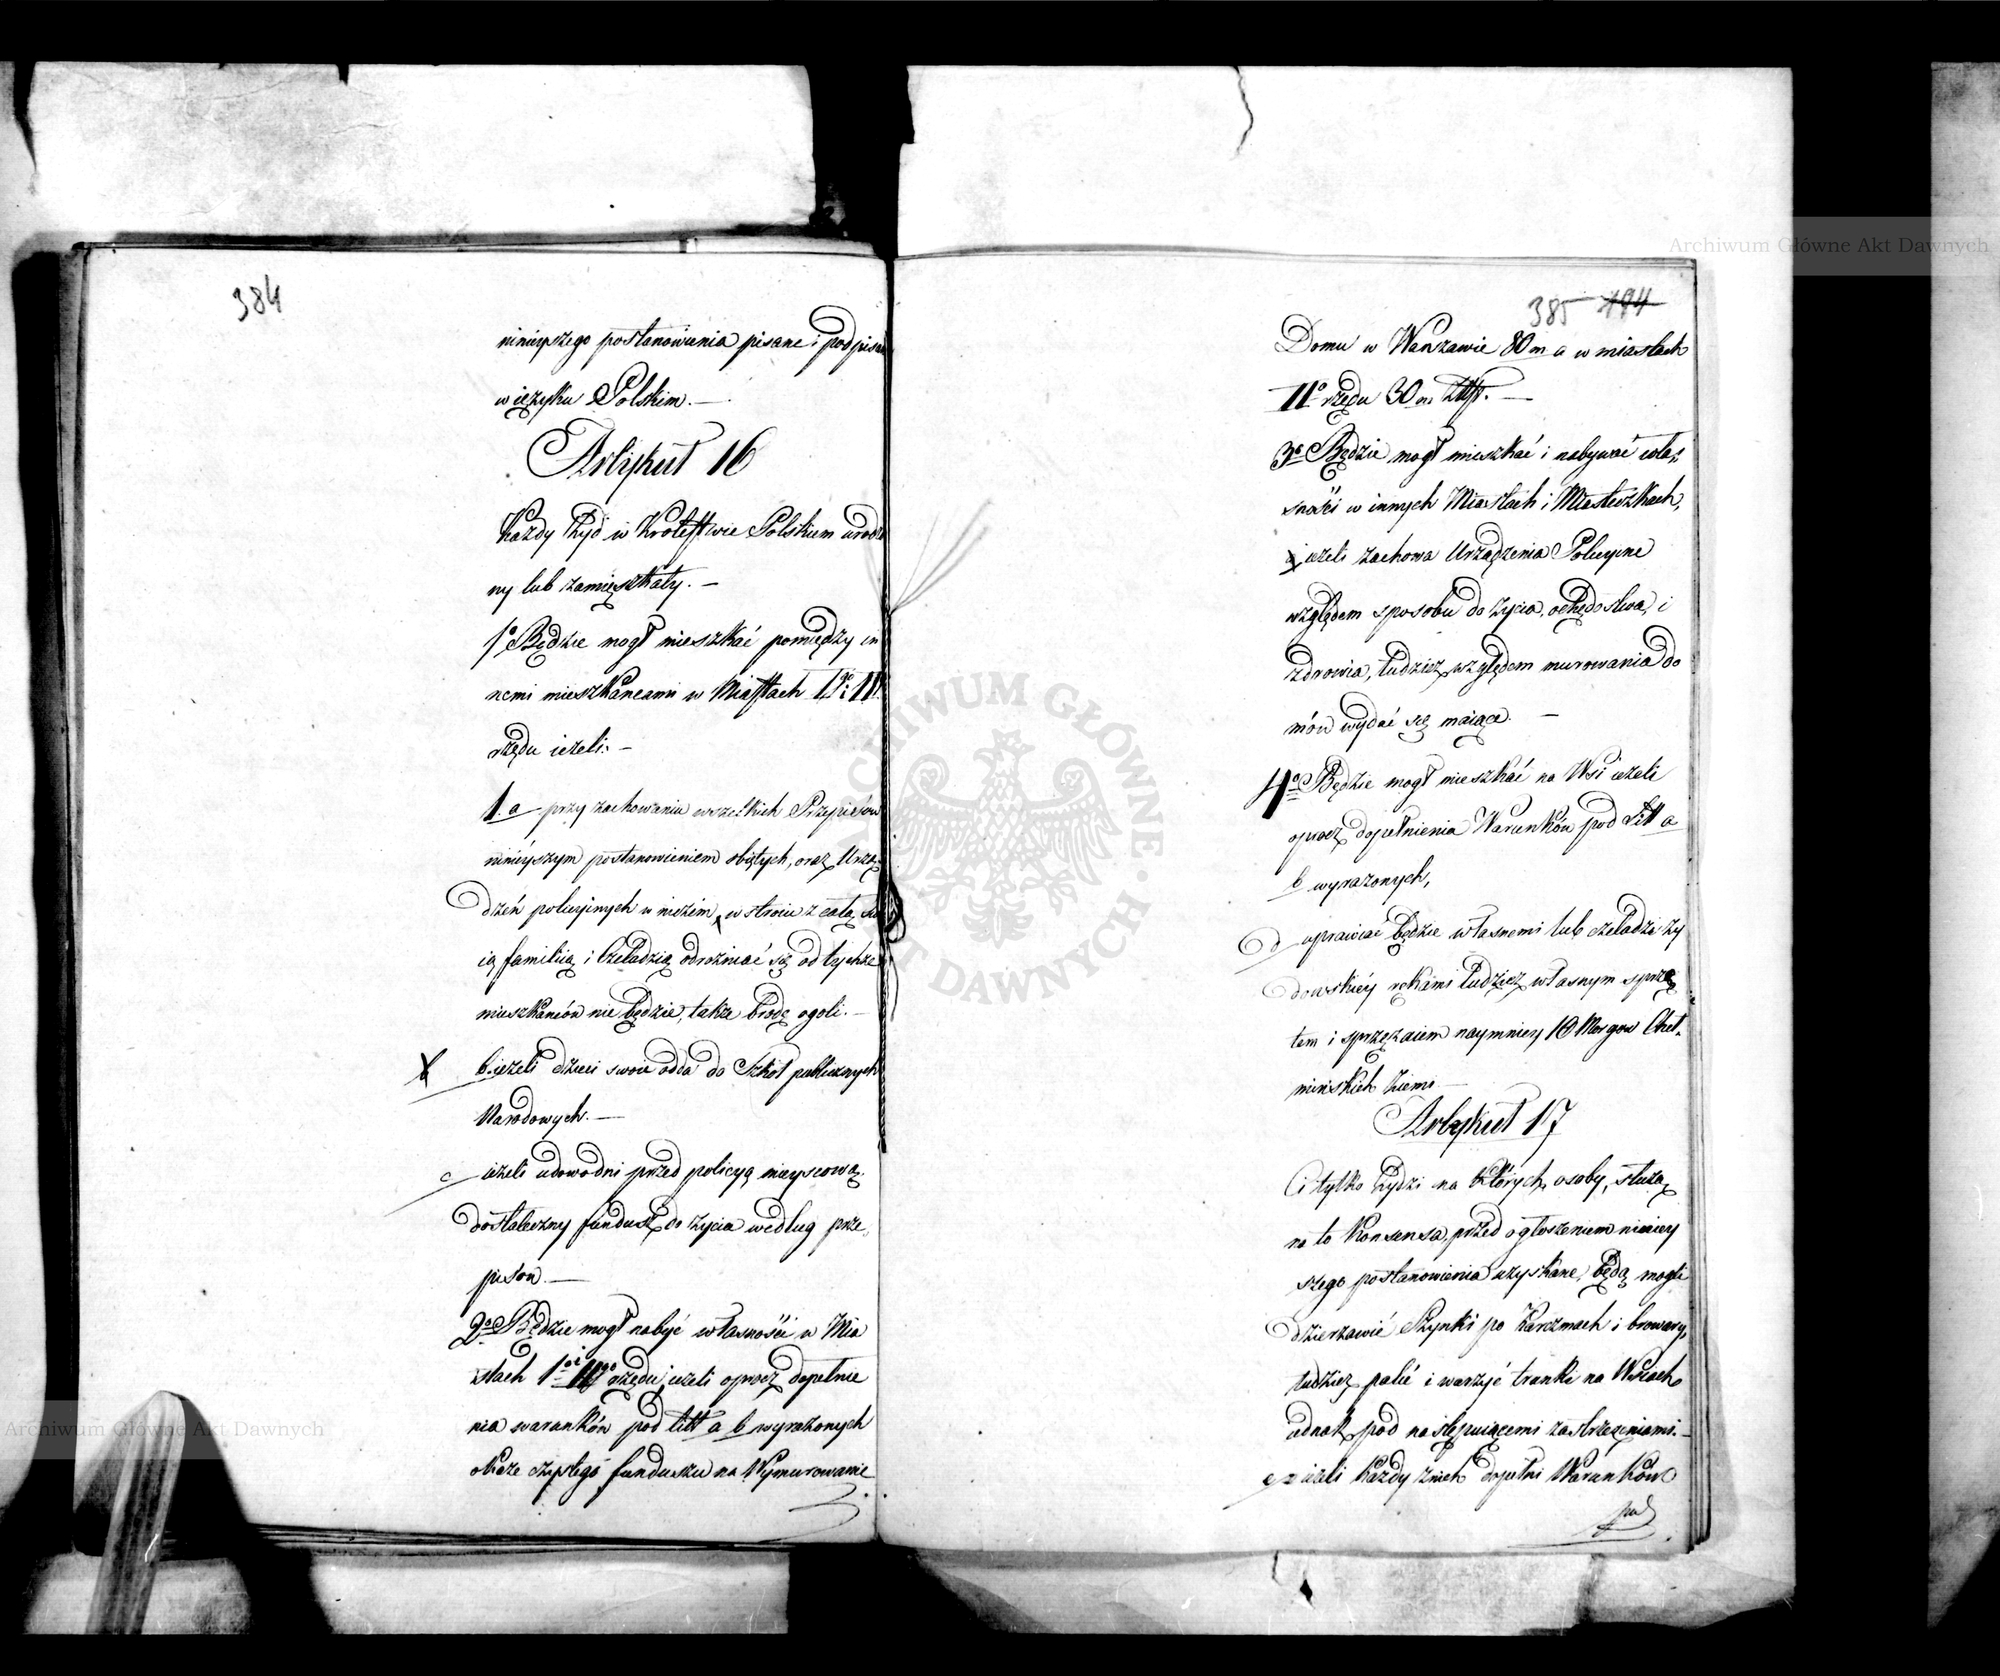 384
ninieyszego postanowienia pisane i podpisa
w ięzyku Polskim. —
Artykuł 16
Każdy Żyd w Krolestwie Polskiem urodzo
ny lub zamieszkały. —
1o Będzie mogł mieszkać pomiędzy in
nemi mieszkańcami w Miastach Igo i II
rzędu ieżeli: —
1. a przy zachowaniu wszelkich Przepisów
ninieyszym postanowieniem obiętych, oraz Urzą
dzeń policyinych w niczim, w stroiu z całą sw
ią familią i Czeladzią odrożniać się od tychże
mieszkańców nie będzie, także brodę ogoli. —
b b. ieżeli dzieci swoie odda do Szkół publicznych
Narodowych. —
c ieżeli udowodni przed policyą mieyscową
dostateczny fundusz do życia według prze
pisow. —
2o Będzie mogł nabyć własności w Mia
stach 1o i IIgo rzędu, ieżeli oprocz dopełnie
nia warunków pod litt a b wyrażonych
okaże czystego funduszu na Wymurowanie
385 194
Domu w Warszawie 80 m a w miastach
IIo rzędu 30 m Złłp. —
3o Będzie mogł mieszkać i nabywać włas
sności w innych Miastach i Miasteczkach,
ieżeli zachowa Urządzenia Policyine
względem sposobu do życia, ochędostwa, i
zdrowia, tudzież względem murowania do
mów wydać się maiące. —
4o Będzie mogł mieszkać na Wsi ieżeli
oprocz dopełnienia Warunków pod Litt a
b wyrażonych,
d uprawiać będzie własnemi lub czeladzi ży
dowskiéy rękami tudzież własnym sprzę
tem i sprzężaiem naymniey 10 Morgow Cheł
mińskich Ziemi —
Artykuł 17
Ci tylko Żydzi na których osoby, służą
na to Konsensa, przed ogłoszeniem niniey
szego postanowienia uzyskane, będą mogli
dzierżawić Szynki po karczmach i browary,
tudzież palić i warzyć trunki na Wsiach
iednak pod następuiącemi zastrzeżeniami. —
ieżeli każdy z nich dopełni Warunków
pod
Archiwum Główne Akt Dawnych
ARCHIWUM GŁÓWNE AKT DAWNYCH
Archiwum Główne Akt Dawnych